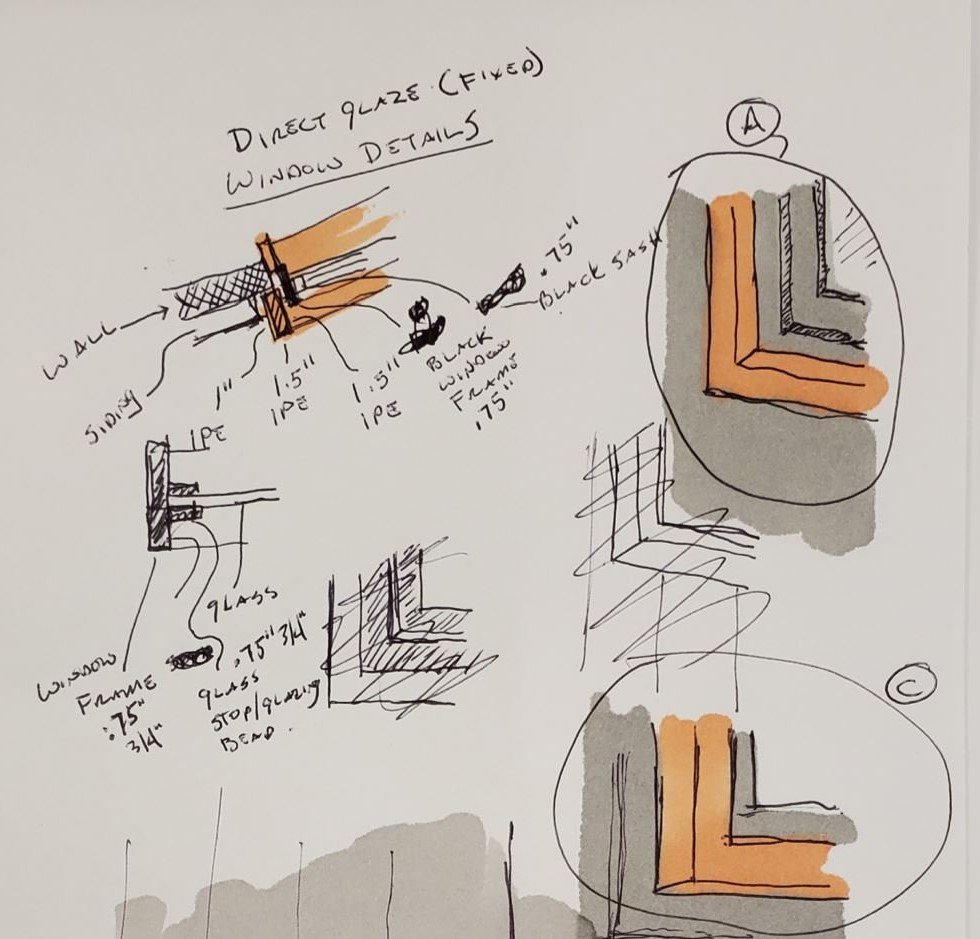 DIRECT GLAZE (FIXED)
WINDOW DETAILS
A
.75"
BLACK SASH
WALL
SIDING
1"
IPE
1.5"
IPE
1.5"
IPE
BLACK
WINDOW
FRAME
.75"
IPE
GLASS
WINDOW
FRAME
.75"
3/4"
.75" 3/4"
GLASS
STOP/GLAZING
BEAD.
C